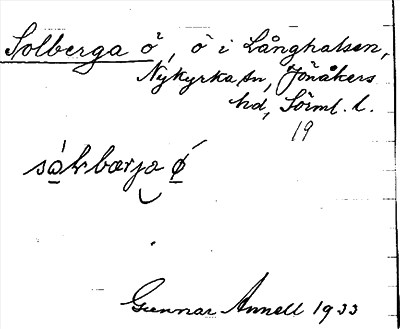 Solberga ö, ö i Långhalsen,
Nykyrka sn, Jönåkers
hd, Sörml. l.
19
Gunnar Annell 1933